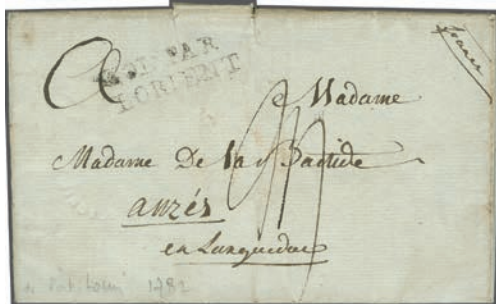 france
PAR
LORIENT
Madame
Madame De la Bastide
auzés
en Languedoc
Port Louis 1782